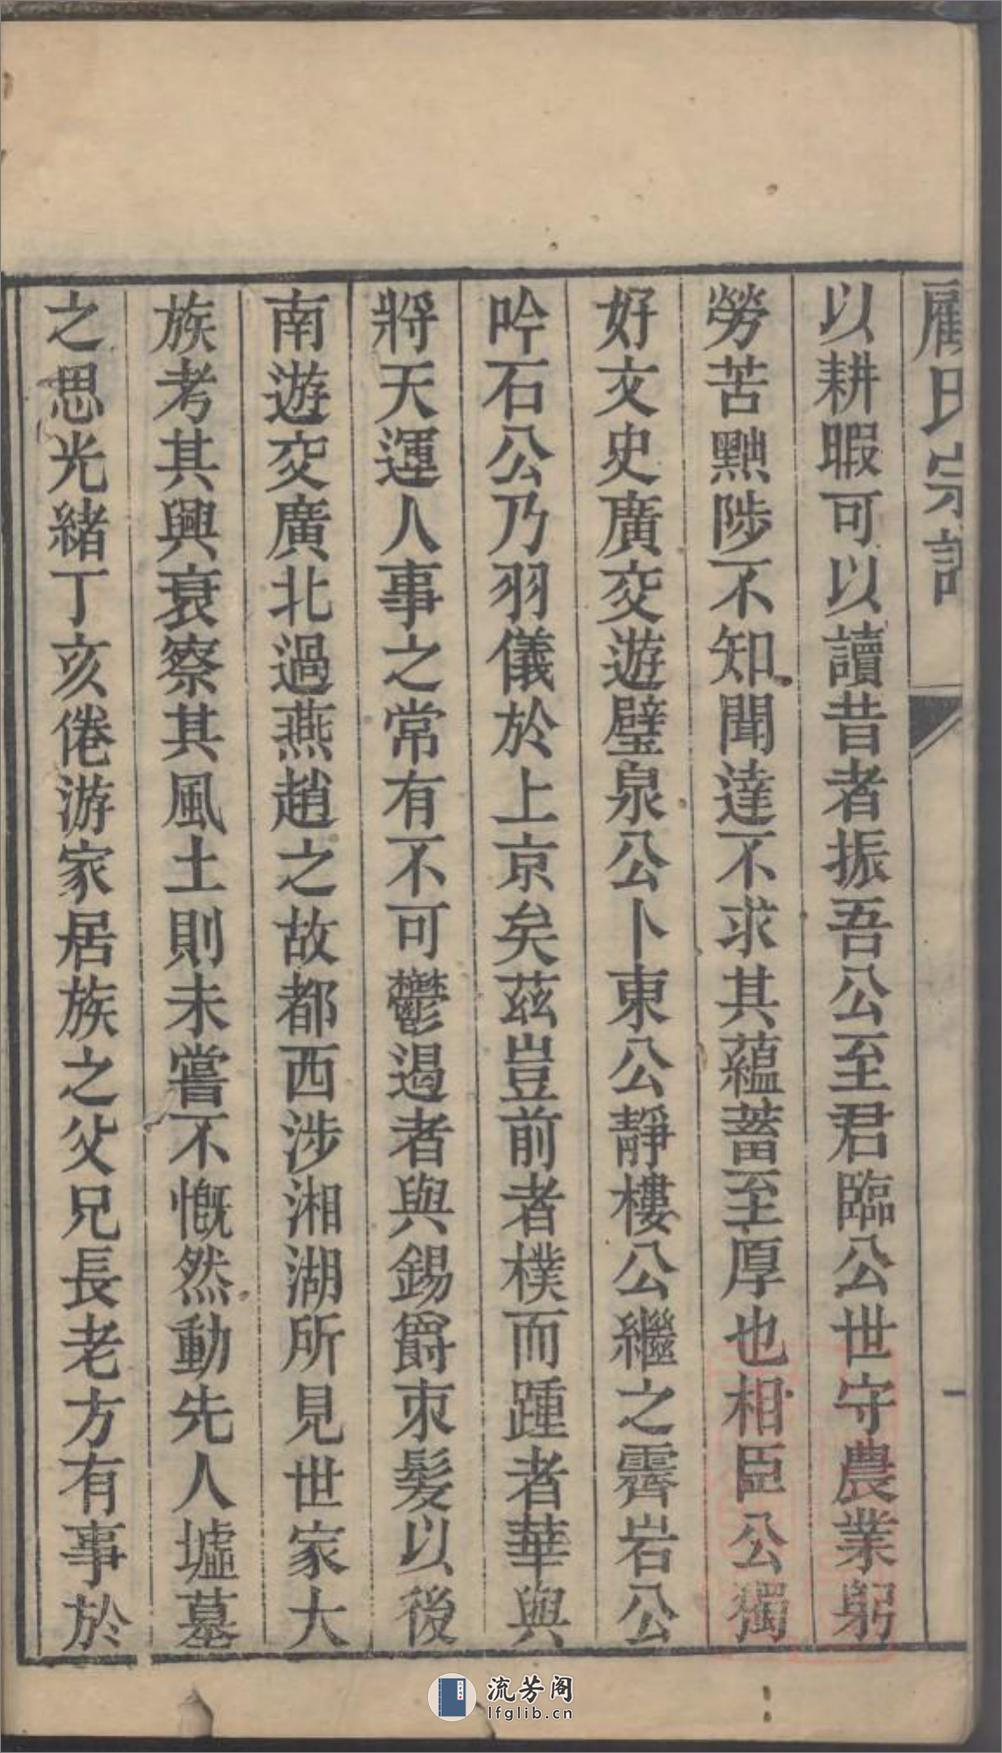 顧氏宗譜
以耕暇可以讀昔者振吾公至君臨公世守農業躬
勞苦黙陟不知聞達不求其蘊蓄至厚也相臣公獨
好文史廣交遊璧泉公卜東公靜樓公繼之霽岩公
吟石公乃羽儀於上京矣茲豈前者樸而踵者華與
將天運人事之常有不可鬱遏者與錫爵束髮以後
南遊交廣北過燕趙之故都西涉湘湖所見世家大
族考其興衰察其風土則未嘗不慨然動先人墟墓
之思光緒丁亥倦游家居族之父兄長老方有事於
流芳阁
lfglib.cn